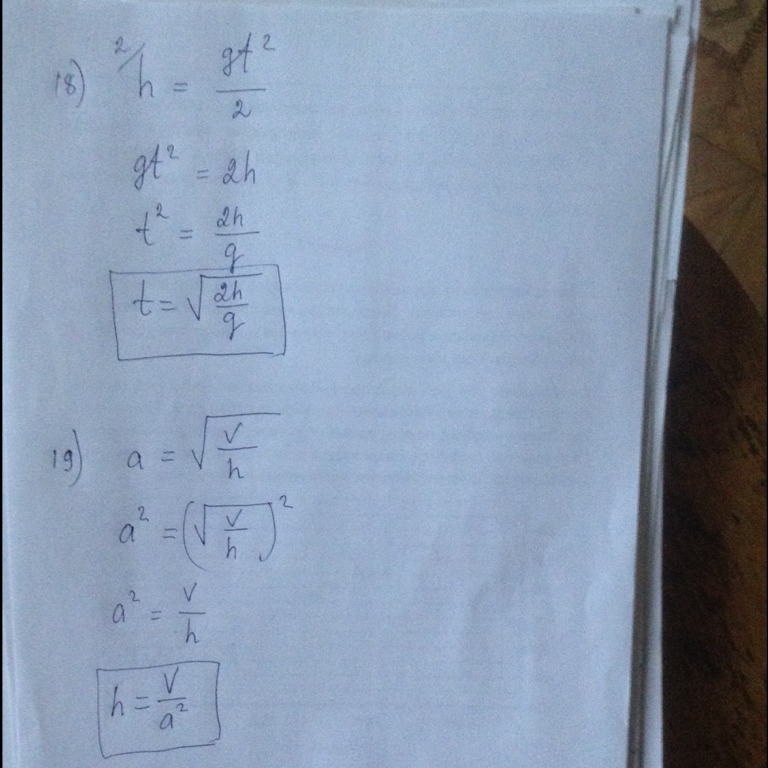 18) ²/h = gt²/2
gt² = 2h
t² = 2h/g
t = √(2h/g)
19) a = √(v/h)
a² = (√(v/h))²
a² = v/h
h = V/a²